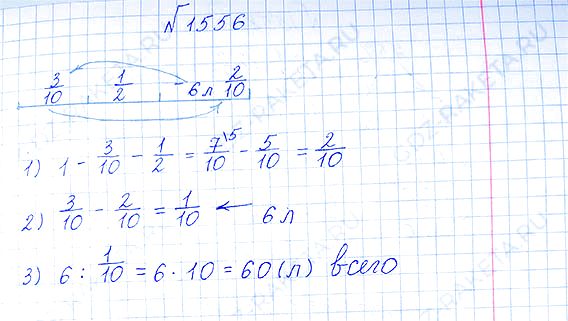 №1556
3/10 1/2 - 6 л 2/10
1) 1 - 3/10 - 1/2 = 7\5/10 - 5/10 = 2/10
2) 3/10 - 2/10 = 1/10 ← 6 л
3) 6 : 1/10 = 6 · 10 = 60 (л) всего
GDZ-RAKETA.RU